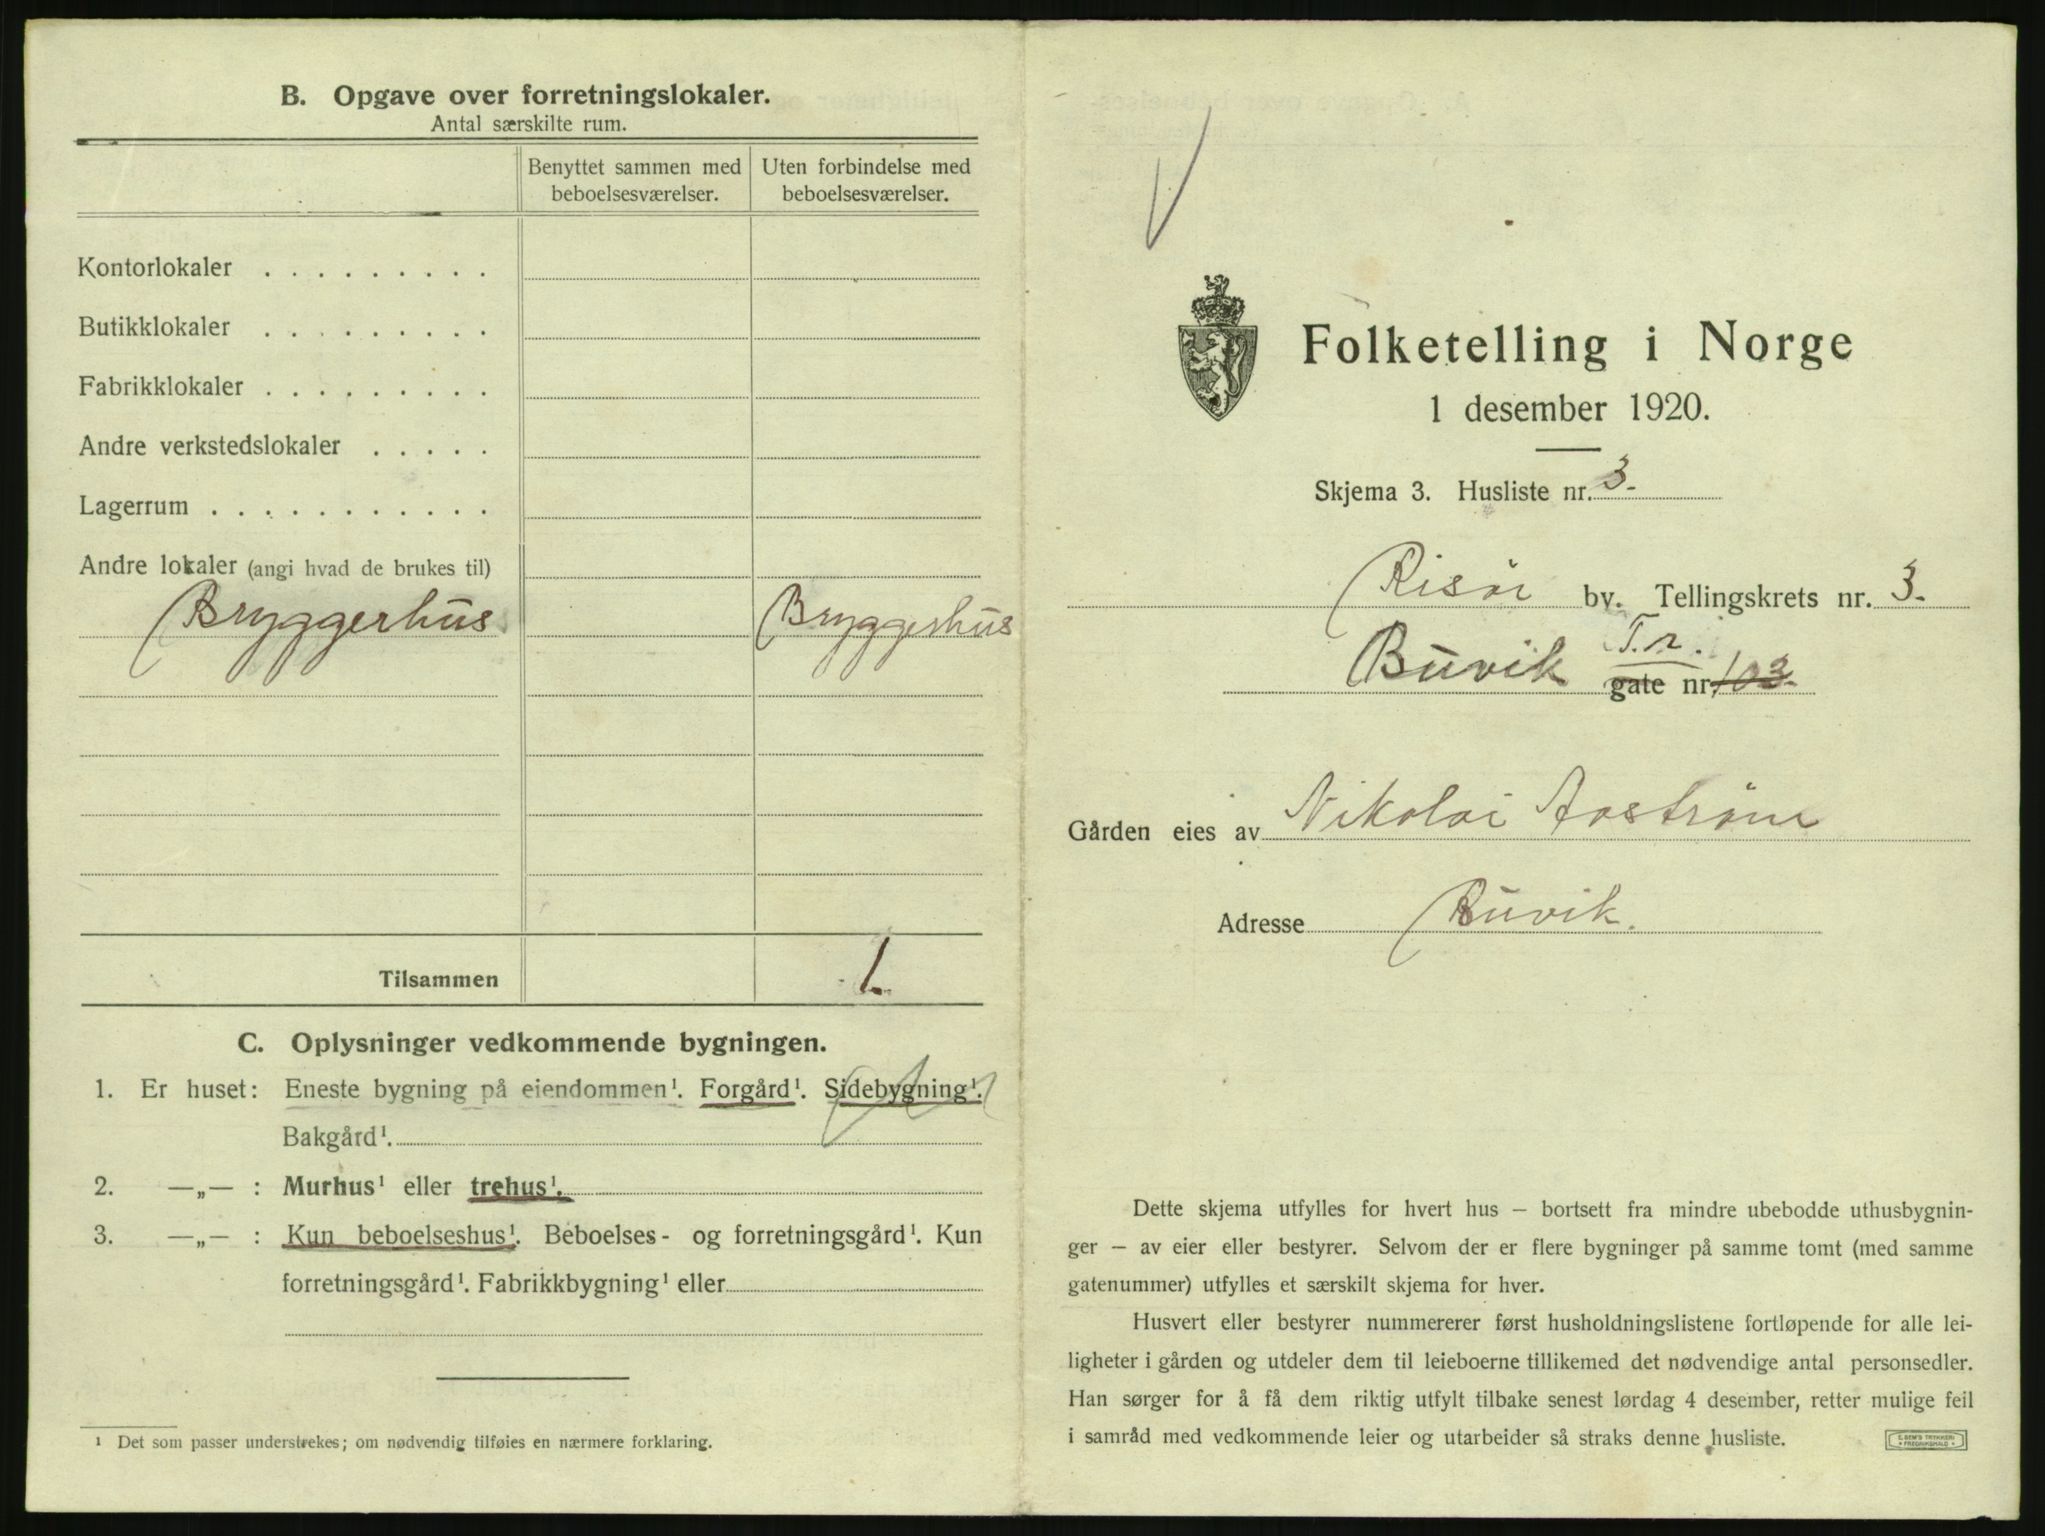 B. Opgave over forretningslokaler.
Antal særskilte rum.
Benyttet sammen med beboelsesværelser.
Uten forbindelse med beboelsesværelser.
Kontorlokaler . . . . . . . . .
Butikklokaler . . . . . . . . .
Fabrikklokaler . . . . . . . . .
Andre verkstedslokaler . . . . .
Lagerrum . . . . . . . . . . .
Andre lokaler (angi hvad de brukes til)
Bryggerhus Bryggerhus
Tilsammen 1.
C. Oplysninger vedkommende bygningen.
1. Er huset: Eneste bygning på eiendommen¹. Forgård¹. Sidebygning¹.
Bakgård¹.
2. —„— : Murhus¹ eller trehus¹.
3. —„— : Kun beboelseshus¹. Beboelses- og forretningsgård¹. Kun
forretningsgård¹. Fabrikkbygning¹ eller
¹ Det som passer understrekes; om nødvendig tilføies en nærmere forklaring.
Folketelling i Norge
1 desember 1920.
Skjema 3. Husliste nr. 3.
Risör by. Tellingskrets nr. 3.
T. n.
Buvik gate nr. 103.
Gården eies av Nikolai
Adresse Buvik.
Dette skjema utfylles for hvert hus – bortsett fra mindre ubebodde uthusbygnin-
ger – av eier eller bestyrer. Selvom der er flere bygninger på samme tomt (med samme
gatenummer) utfylles et særskilt skjema for hver.
Husvert eller bestyrer nummererer først husholdningslistene fortløpende for alle lei-
ligheter i gården og utdeler dem til leieboerne tillikemed det nødvendige antal personsedler.
Han sørger for å få dem riktig utfylt tilbake senest lørdag 4 desember, retter mulige feil
i samråd med vedkommende leier og utarbeider så straks denne husliste.
E. SEM'S TRYKKERI
• FREDRIKSHALD •